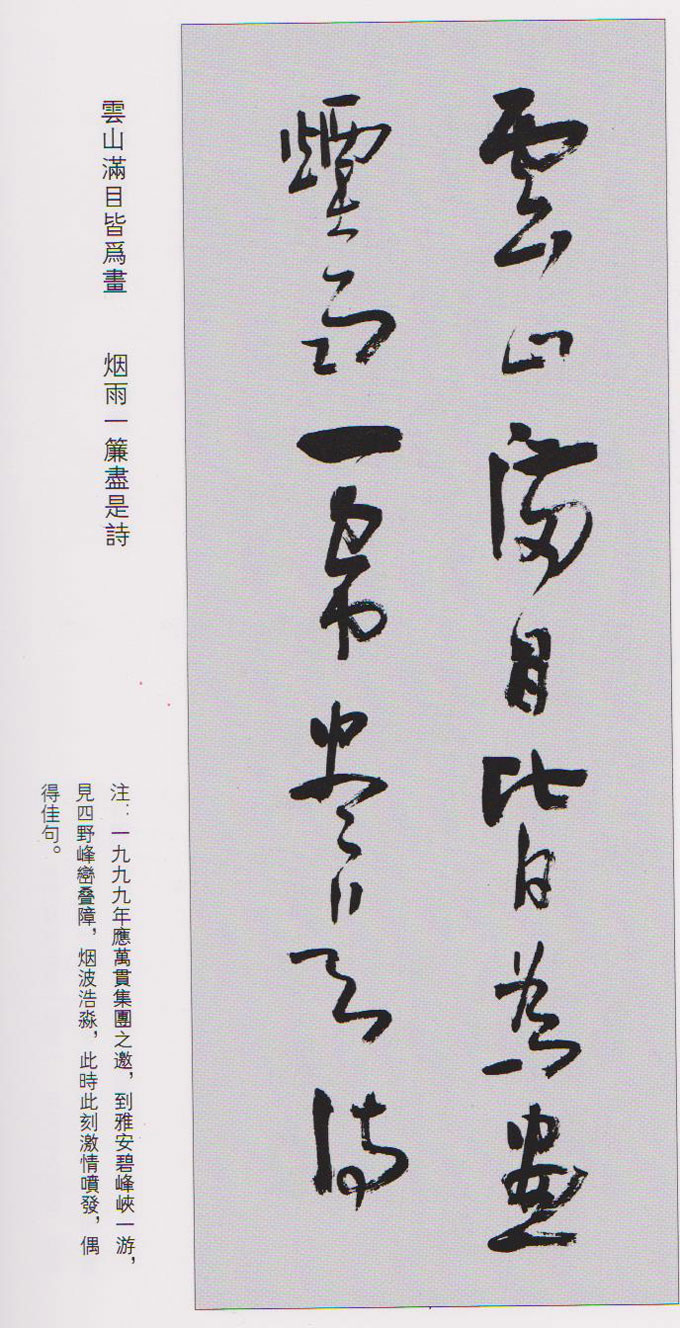 雲山滿目皆為畫
煙雨一帘盡是詩
雲山滿目皆爲畫　烟雨一簾盡是詩
注：一九九九年應萬貫集團之邀，到雅安碧峰峽一游，
見四野峰巒叠障，烟波浩淼，此時此刻激情噴發，偶
得佳句。